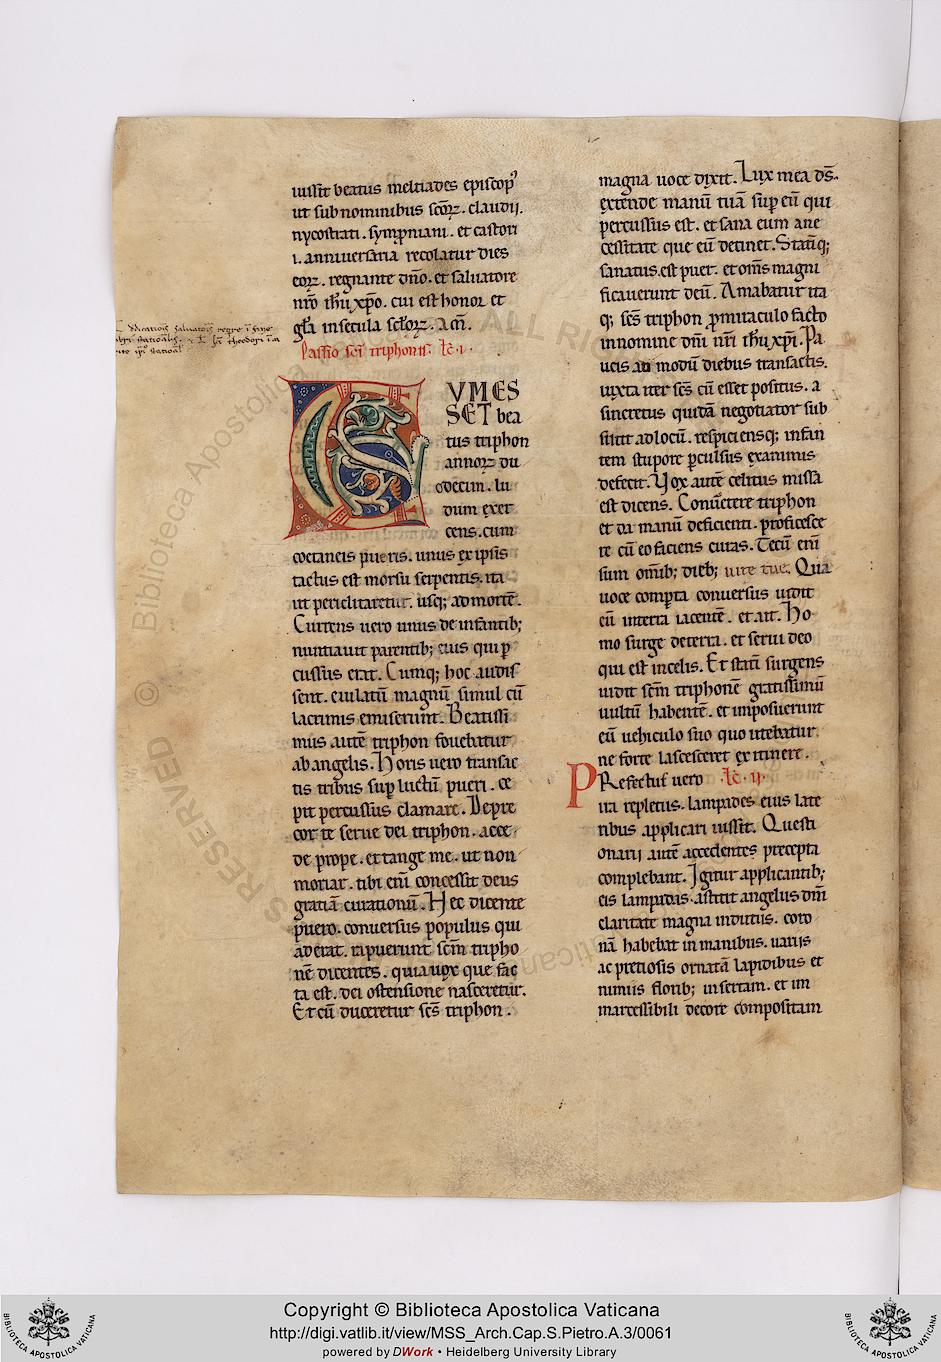 iussit beatus meltiades episcop᾽
ut sub nominibus sc̄oꝝ. claudij.
nycostrati. symproniani. et castori
i. anniuersaria recolatur dies
eoꝝ. regnante dn̄o. et saluatore
nr̄o ih̄u xp̄o. cui est honor et
gl̄a in secula scl̄oꝝ. am̄.
Passio sc̄i triphonis. lc̄. i.
CVM ES
SET bea
tus triphon
annoꝝ du
odecim. lu
dum exer
cens. cum
coetaneis pueris. unus ex ipsis
tactus est morsu serpentis. ita
ut periclitaretur. usq; ad morte᷑.
Currens uero unus de infantib;
nuntiauit parentib; eius qui ꝑ
cussus erat. Cumq; hoc audis
sent. eiulatū magnū simul cū
lacrimis emiserunt. Beatissi
mus autē triphon fouebatur
ab angelis. Horis uero transac
tis tribus suꝑ luctū pueri. ce
pit percussus clamare. Depre
cor te serue dei triphon. acce
de prope. et tange me. ut non
moriar. tibi enī concessit deus
gratiā curationū. Hec dicente
puero. conuersus populus qui
aderat. rapuerunt sc̄m tripho
nē dicentes. quia uox que fac
ta est. dei ostensione nasceretur.
Et cū duceretur sc̄s triphon.
magna uoce dixit. Lux mea ds̄.
extende manū tuā suꝑ eū qui
percussus est. et sana eum a ne
cessitate que eū detinet. Statiq;
sanatus est puer. et om̄s magni
ficauerunt deū. Amabatur ita
q; sc̄s triphon ꝓ miraculo facto
in nomine dn̄i nr̄i ih̄u xp̄i. Pa
ucis au modū diebus transactis.
iuxta iter sc̄s cū esset positus. a
sincretus quidā negotiator sub
stitit ad locū. respiciensq; infan
tem stupore ꝑculsus exanimis
defecit. Vox autē celitus missa
est dicens. Conūtere triphon
et da manū deficienti. proficisce
re cū eo faciens curas. Tecū enī
sum omīb; dieb; uite tue. Qua
uoce comꝑta conuersus uidit
eū in terra iacentē. et ait. Ho
mo surge de terra. et serui deo
qui est in celis. Et statī surgens
uidit sc̄m triphonē gratissimū
uultū habentē. et imposuerunt
eū uehiculo suo quo utebatur.
ne forte lascesceret ex itinere.
PRefectus uero lc̄. ij.
ira repletus. lampades eius late
ribus applicari iussit. Questi
onarij autē accedentes precepta
complebant. Igitur applicantib;
eis lampadas. astitit angelus dn̄i
claritate magna indutus. coro
nā habebat in manibus. uariis
ac pretiosis ornatā lapidibus et
nimiis florib; insertam. et im
marcessibili decore compositam
© Biblioteca Apostolica Vaticana ALL RIGHTS RESERVED
Copyright © Biblioteca Apostolica Vaticana
http://digi.vatlib.it/view/MSS_Arch.Cap.S.Pietro.A.3/0061
powered by DWork • Heidelberg University Library
BIBLIOTECA APOSTOLICA VATICANA
BIBLIOTECA APOSTOLICA VATICANA